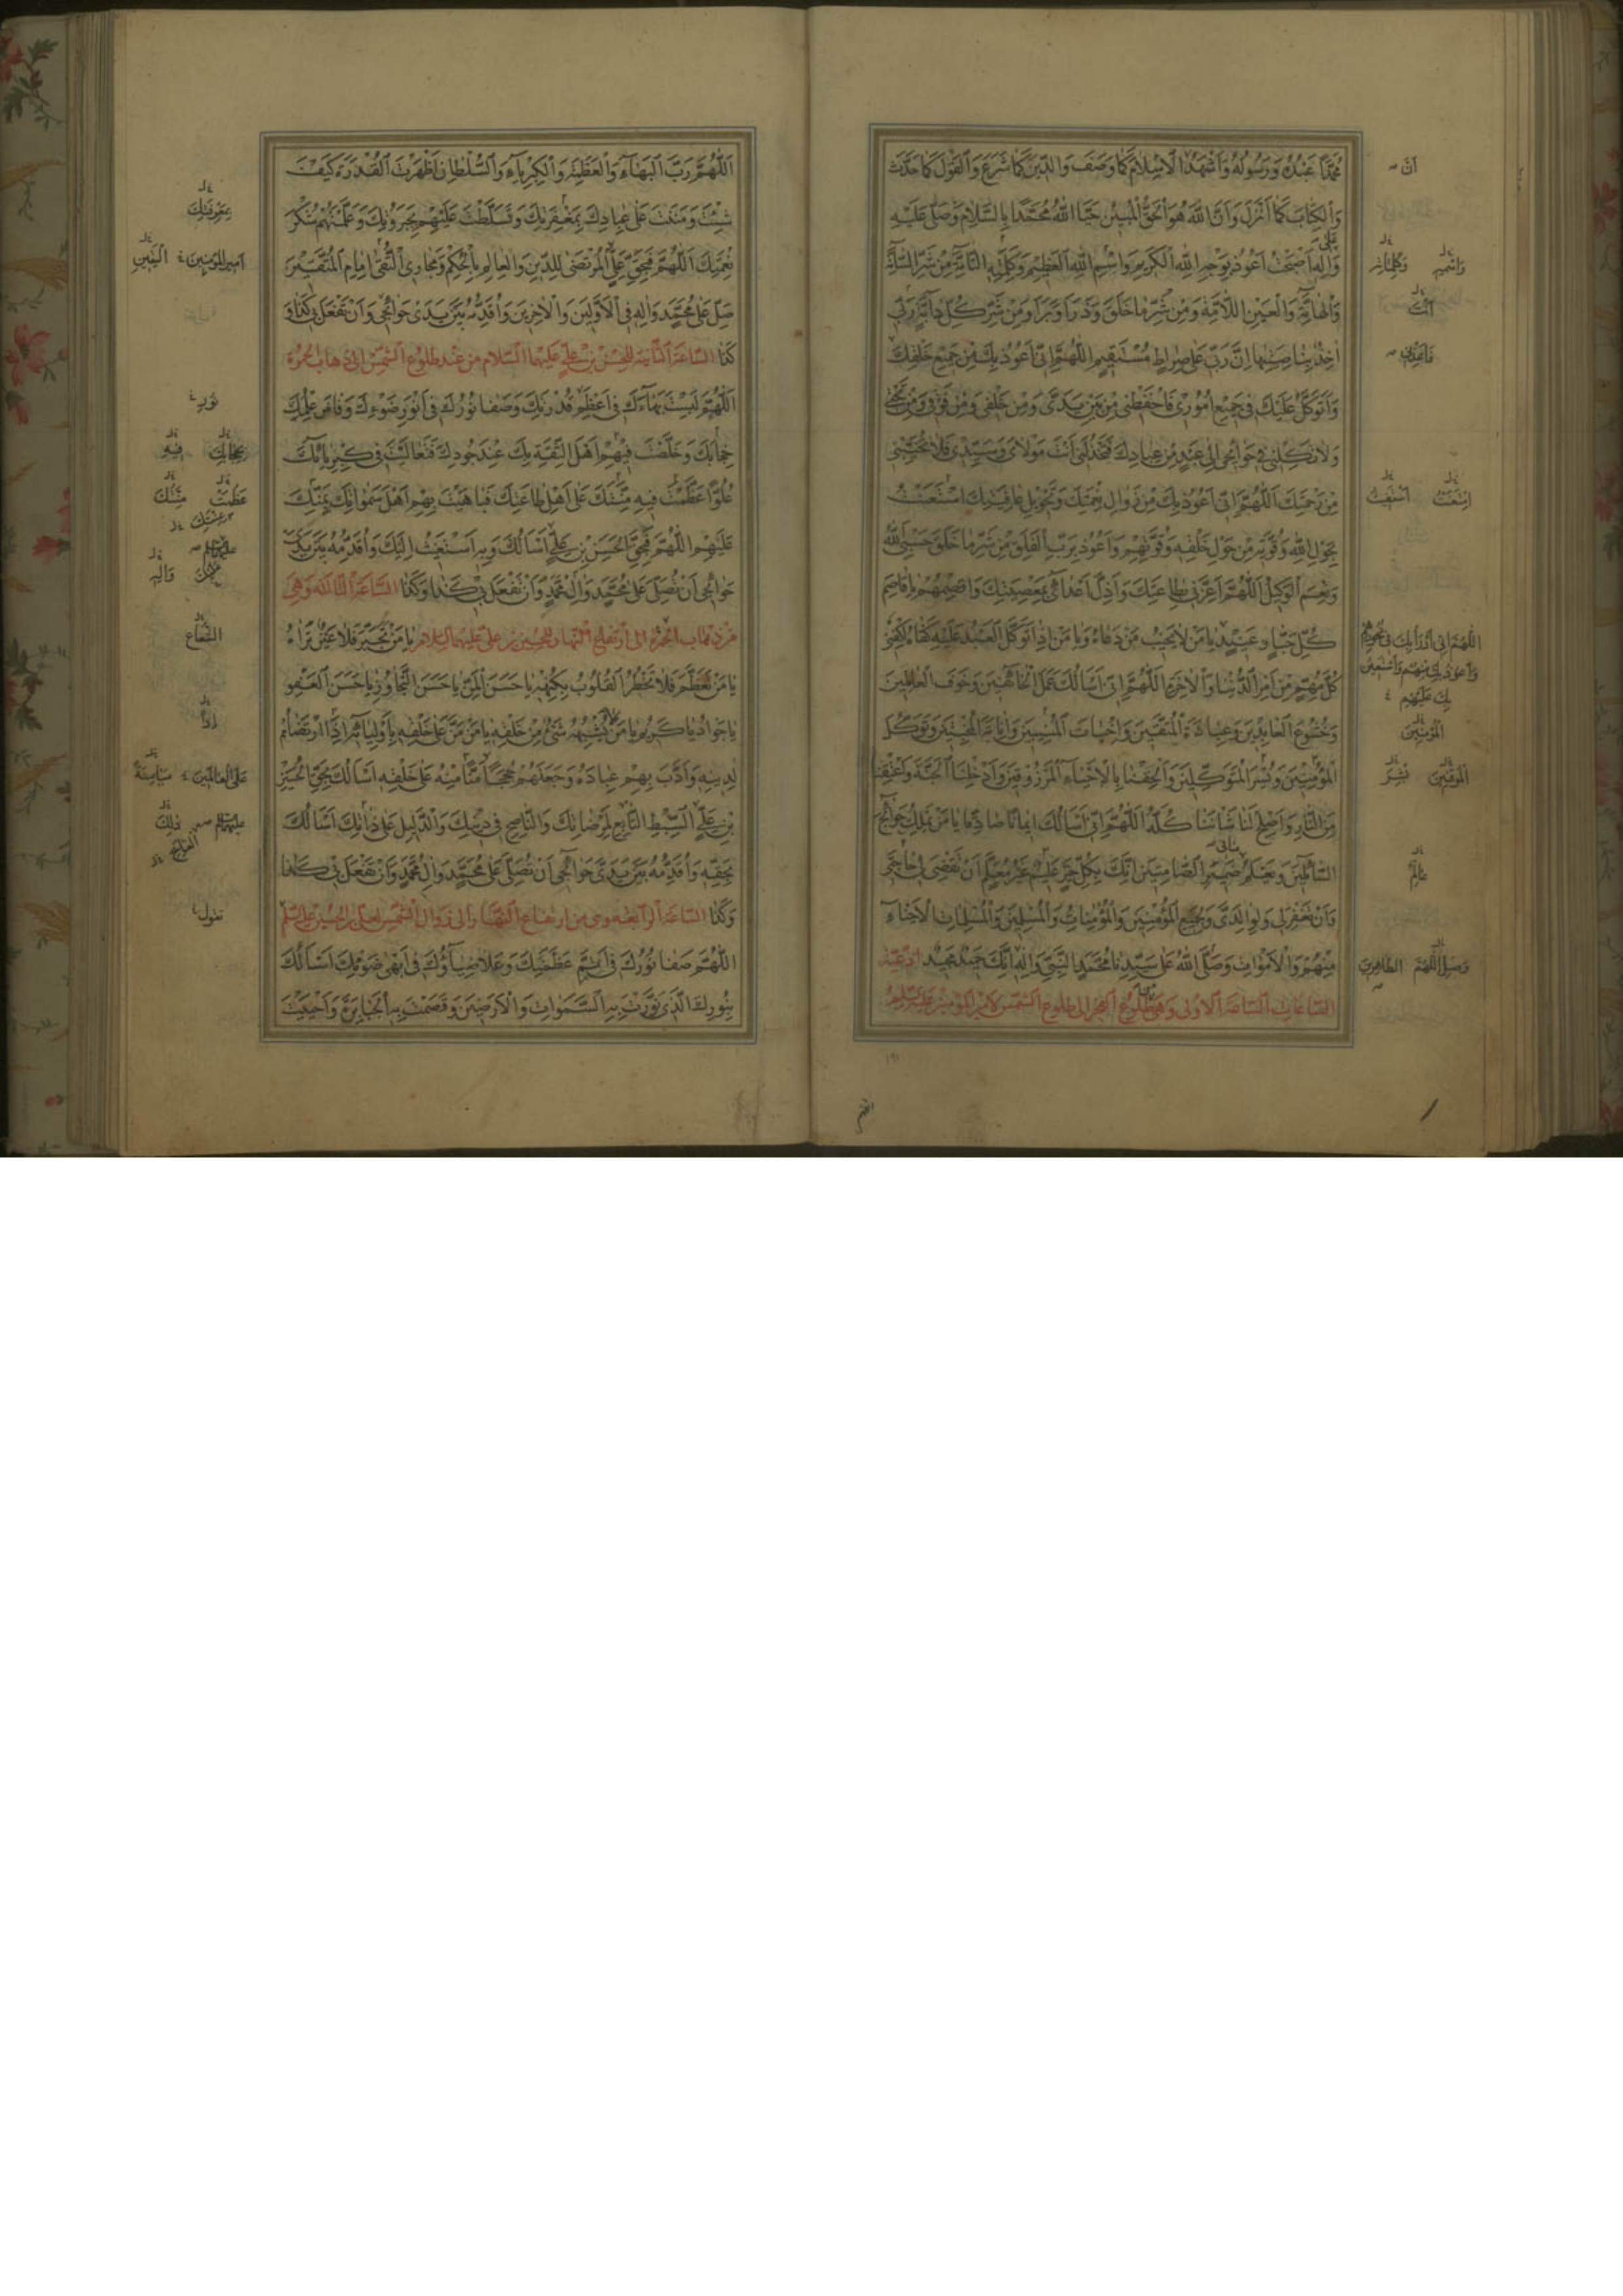 مُحَمَّدًا عَبْدُهُ وَرَسُولُهُ وَاَشْهَدُ اَنَّ الْاِسْلَامَ كَمَا وَصَفَ وَالدِّينَ كَمَا شَرَعَ وَالْقَوْلَ كَمَا حَدَّثَ
وَالْكِتَابَ كَمَا اَنْزَلَ وَاَنَّ اللهَ هُوَ الْحَقُّ الْمُبِينُ حَيَّا اللهُ مُحَمَّدًا بِالسَّلَامِ وَصَلَّى عَلَيْهِ
وَاٰلِهِ اَصْبَحْتُ اَعُوذُ بِوَجْهِ اللهِ الْكَرِيمِ وَاسْمِ اللهِ الْعَظِيمِ وَكَلِمَتِهِ التَّامَّةِ مِنْ شَرِّ السَّامَّةِ
وَالْهَامَّةِ وَالْعَيْنِ اللَّامَّةِ وَمِنْ شَرِّ مَا خَلَقَ وَذَرَاَ وَبَرَاَ وَمِنْ شَرِّ كُلِّ دَابَّةٍ رَبِّي
اٰخِذٌ بِنَاصِيَتِهَا اِنَّ رَبِّي عَلَى صِرَاطٍ مُسْتَقِيمٍ اَللّٰهُمَّ اِنِّي اَعُوذُ بِكَ مِنْ جَمِيعِ خَلْقِكَ
وَاَتَوَكَّلُ عَلَيْكَ فِي جَمِيعِ اُمُورِي فَاحْفَظْنِي مِنْ بَيْنِ يَدَيَّ وَمِنْ خَلْفِي وَمِنْ فَوْقِي وَمِنْ تَحْتِي
وَلَا تَكِلْنِي فِي حَوَائِجِي اِلَى عَبْدٍ مِنْ عِبَادِكَ فَيَخْذُلَنِي اَنْتَ مَوْلَايَ وَسَيِّدِي فَلَا تُخَيِّبْنِي
مِنْ رَحْمَتِكَ اَللّٰهُمَّ اِنِّي اَعُوذُ بِكَ مِنْ زَوَالِ نِعْمَتِكَ وَتَحْوِيلِ عَافِيَتِكَ اسْتَعَنْتُ
بِحَوْلِ اللهِ وَقُوَّتِهِ مِنْ حَوْلِ خَلْقِهِ وَقُوَّتِهِمْ وَاَعُوذُ بِرَبِّ الْفَلَقِ مِنْ شَرِّ مَا خَلَقَ حَسْبِيَ اللهُ
وَنِعْمَ الْوَكِيلُ اَللّٰهُمَّ اَعِزَّنِي بِطَاعَتِكَ وَاَذِلَّ اَعْدَائِي بِمَعْصِيَتِكَ وَاقْصِمْهُمْ يَا قَاصِمَ
كُلِّ جَبَّارٍ عَنِيدٍ يَا مَنْ لَا يَخِيبُ مَنْ دَعَاهُ وَيَا مَنْ اِذَا تَوَكَّلَ الْعَبْدُ عَلَيْهِ كَفَاهُ اِكْفِنِي
كُلَّ مُهِمٍّ مِنْ اَمْرِ الدُّنْيَا وَالْاٰخِرَةِ اَللّٰهُمَّ اِنِّي اَسْاَلُكَ عَمَلَ الْخَائِفِينَ وَخَوْفَ الْعَامِلِينَ
وَخُشُوعَ الْعَابِدِينَ وَعِبَادَةَ الْمُتَّقِينَ وَاِخْبَاتَ الْمُنِيبِينَ وَاِنَابَةَ الْمُخْبِتِينَ وَتَوَكُّلَ
الْمُؤْمِنِينَ وَيُسْرَ الْمُتَوَكِّلِينَ وَاَلْحِقْنَا بِالْاَحْيَاءِ الْمَرْزُوقِينَ وَاَدْخِلْنَا الْجَنَّةَ وَاَعْتِقْنَا
مِنَ النَّارِ وَاَصْلِحْ لَنَا شَاْنَنَا كُلَّهُ اَللّٰهُمَّ اِنِّي اَسْاَلُكَ اِيمَانًا صَادِقًا يَا مَنْ يَمْلِكُ حَوَائِجَ
السَّائِلِينَ وَيَعْلَمُ ضَمِيرَ الصَّامِتِينَ اِنَّكَ بِكُلِّ خَيْرٍ عَلِيمٌ غَيْرُ مُعَلَّمٍ اَنْ تَقْضِيَ لِي حَاجَتِي
وَاَنْ تَغْفِرَ لِي وَلِوَالِدَيَّ وَلِجَمِيعِ الْمُؤْمِنِينَ وَالْمُؤْمِنَاتِ وَالْمُسْلِمِينَ وَالْمُسْلِمَاتِ الْاَحْيَاءِ
مِنْهُمْ وَالْاَمْوَاتِ وَصَلَّى اللهُ عَلَى سَيِّدِنَا مُحَمَّدٍ النَّبِيِّ وَاٰلِهِ اِنَّكَ حَمِيدٌ مَجِيدٌ اَدْعِيَةُ
السَّاعَاتِ السَّاعَةُ الْاُولَى وَهِيَ مِنْ طُلُوعِ الْفَجْرِ اِلَى طُلُوعِ الشَّمْسِ لِاَمِيرِ الْمُؤْمِنِينَ
اَنَّ
وَاسْمِهِ وَكَلِمَاتِهِ
اَنْتَ
اللّٰهُمَّ اِنِّي اَدْرَأُ بِكَ فِي نُحُورِهِمْ
وَاَعُوذُ بِكَ مِنْهُمْ وَاَسْتَعِينُ
بِكَ عَلَيْهِمْ
الْمُؤْمِنِينَ
الْمُوقِنِينَ بُشْرَ
عَالِمٌ
وَصَلِّ اللّٰهُمَّ الطَّاهِرِينَ
اَللّٰهُمَّ رَبَّ الْبَهَاءِ وَالْعَظَمَةِ وَالْكِبْرِيَاءِ وَالسُّلْطَانِ اَظْهَرْتَ الْقُدْرَةَ كَيْفَ
شِئْتَ وَمَنَنْتَ عَلَى عِبَادِكَ بِمَعْرِفَتِكَ وَتَسَلَّطْتَ عَلَيْهِمْ بِجَبَرُوتِكَ وَعَلَّمْتَهُمْ شُكْرَ
نِعْمَتِكَ اَللّٰهُمَّ فَبِحَقِّ عَلِيٍّ الْمُرْتَضَى لِلدِّينِ وَالْعَالِمِ بِالْحُكْمِ وَمَجَارِي التُّقَى اِمَامِ الْمُتَّقِينَ
صَلِّ عَلَى مُحَمَّدٍ وَاٰلِهِ فِي الْاَوَّلِينَ وَالْاٰخِرِينَ وَاُقَدِّمُهُ بَيْنَ يَدَيْ حَوَائِجِي وَاَنْ تَفْعَلَ بِي كَذَا وَ
كَذَا السَّاعَةُ الثَّانِيَةُ لِلْحَسَنِ بْنِ عَلِيٍّ عَلَيْهِمَا السَّلَامُ مِنْ عِنْدِ طُلُوعِ الشَّمْسِ اِلَى ذَهَابِ الْحُمْرَةِ
اَللّٰهُمَّ لَبِسْتَ بَهَاءَكَ فِي اَعْظَمِ قُدْرَتِكَ وَصَفَا نُورُكَ فِي اَنْوَرِ ضَوْئِكَ وَفَاضَ عِلْمُكَ
حِجَابَكَ وَخَلَّصْتَ فِيهِمْ اَهْلَ الثِّقَةِ بِكَ عِنْدَ جُودِكَ فَتَعَالَيْتَ فِي كِبْرِيَائِكَ
عُلُوًّا عَظُمَتْ فِيهِ مِنَّتُكَ عَلَى اَهْلِ طَاعَتِكَ فَبَاهَيْتَ بِهِمْ اَهْلَ سَمٰوَاتِكَ بِمَنِّكَ
عَلَيْهِمْ اَللّٰهُمَّ فَبِحَقِّ الْحَسَنِ بْنِ عَلِيٍّ اَسْاَلُكَ وَبِهِ اَسْتَغِيثُ اِلَيْكَ وَاُقَدِّمُهُ بَيْنَ يَدَيْ
حَوَائِجِي اَنْ تُصَلِّيَ عَلَى مُحَمَّدٍ وَاٰلِ مُحَمَّدٍ وَاَنْ تَفْعَلَ بِي كَذَا وَكَذَا السَّاعَةُ الثَّالِثَةُ وَهِيَ
مِنْ ذَهَابِ الْحُمْرَةِ اِلَى ارْتِفَاعِ النَّهَارِ لِلْحُسَيْنِ بْنِ عَلِيٍّ عَلَيْهِمَا السَّلَامُ يَا مَنْ تَجَبَّرَ فَلَا عَيْنٌ تَرَاهُ
يَا مَنْ تَعَظَّمَ فَلَا تَخْطُرُ الْقُلُوبُ بِكُنْهِهِ يَا حَسَنَ الْمَنِّ يَا حَسَنَ التَّجَاوُزِ يَا حَسَنَ الْعَفْوِ
يَا جَوَادُ يَا كَرِيمُ يَا مَنْ لَا يُشْبِهُهُ شَيْءٌ مِنْ خَلْقِهِ يَا مَنْ مَنَّ عَلَى خَلْقِهِ بِاَوْلِيَائِهِ اِذِ ارْتَضَاهُمْ
لِدِينِهِ وَاَدَّبَ بِهِمْ عِبَادَهُ وَجَعَلَهُمْ حُجَجًا مَنًّا مِنْهُ عَلَى خَلْقِهِ اَسْاَلُكَ بِحَقِّ الْحُسَيْنِ
بْنِ عَلِيٍّ السِّبْطِ التَّابِعِ لِمَرْضَاتِكَ وَالنَّاصِحِ فِي دِينِكَ وَالدَّلِيلِ عَلَى ذَاتِكَ اَسْاَلُكَ
بِحَقِّهِ وَاُقَدِّمُهُ بَيْنَ يَدَيْ حَوَائِجِي اَنْ تُصَلِّيَ عَلَى مُحَمَّدٍ وَاٰلِ مُحَمَّدٍ وَاَنْ تَفْعَلَ بِي كَذَا
وَكَذَا السَّاعَةُ الرَّابِعَةُ وَهِيَ مِنِ ارْتِفَاعِ النَّهَارِ اِلَى زَوَالِ الشَّمْسِ لِعَلِيِّ بْنِ الْحُسَيْنِ
اَللّٰهُمَّ صَفَا نُورُكَ فِي اَتَمِّ عَظَمَتِكَ وَعَلَا ضِيَاؤُكَ فِي اَبْهَى ضَوْئِكَ اَسْاَلُكَ
بِنُورِكَ الَّذِي نَوَّرْتَ بِهِ السَّمٰوَاتِ وَالْاَرَضِينَ وَقَصَمْتَ بِهِ الْجَبَابِرَةَ وَاَحْيَيْتَ
بِمَعْرِفَتِكَ
اَمِيرِ الْمُؤْمِنِينَ الْيَقِينِ
نُورِ
فِيهِ
مَنَّكَ
وَاٰلِهِ
الشُّعَاعِ
عَلَى الْعَالَمِينَ
ذٰلِكَ